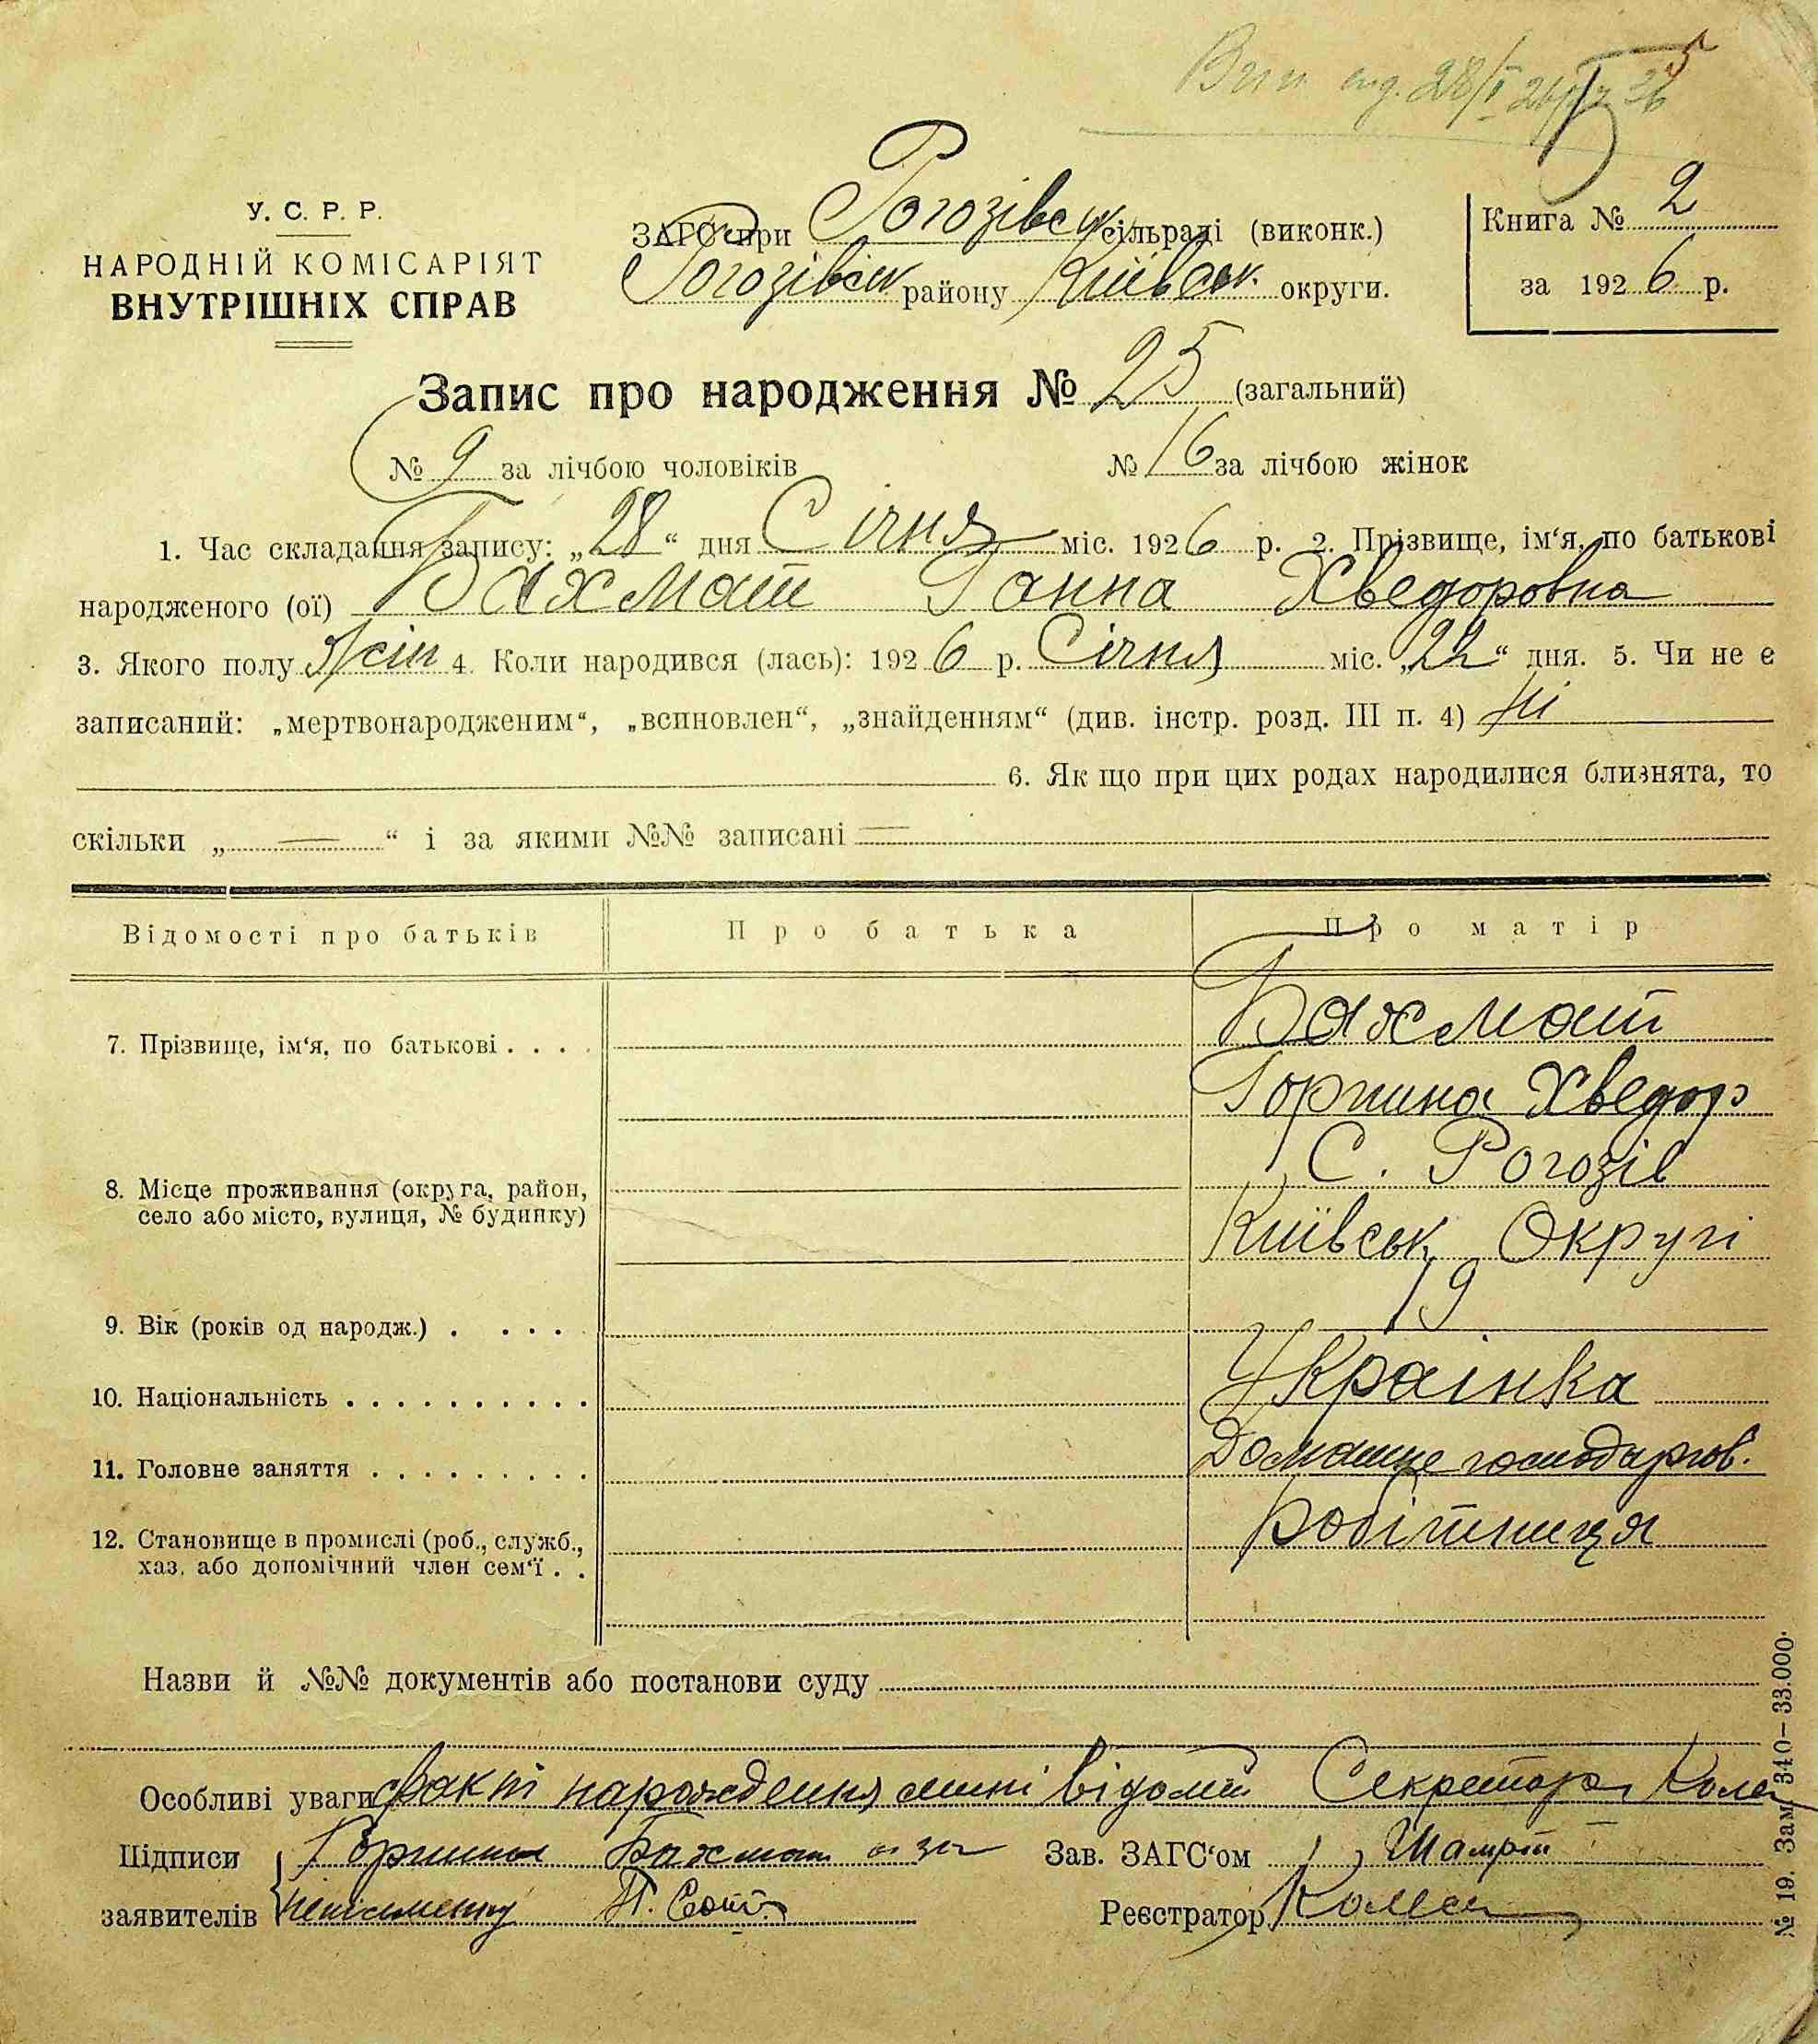 Вип. вид. 28/I 26 р.
У. С. Р. Р.
НАРОДНІЙ КОМІСАРІЯТ
ВНУТРІШНІХ СПРАВ
ЗАГС при Рогозівск сільраді (виконк.)
Рогозівск району Київськ. округи.
Книга № 2
за 1926 р.
Запис про народження № 25 (загальний)
№ 9 за лічбою чоловіків № 16 за лічбою жінок
1. Час складання запису: „28“ дня Січня міс. 1926 р. 2. Прізвище, ім‘я, по батькові
народженого (ої) Бахмат Ганна Хведоровна
3. Якого полу Жін 4. Коли народився (лась): 1926 р. Січня міс. „22“ дня. 5. Чи не є
записаний: „мертвонародженим“, „всиновлен“, „знайденням“ (див. інстр. розд. III п. 4) Ні
6. Як що при цих родах народилися близнята, то
скільки „ — “ і за якими №№ записані —
Відомості про батьків Про батька Про матір
7. Прізвище, ім‘я, по батькові . . . . Бахмат
Горпина Хведор
8. Місце проживання (округа, район, С. Рогозів
село або місто, вулиця, № будинку) Київськ Округі
9. Вік (років од народж.) . . . . 19
10. Національність . . . . . . . . . . Українка
11. Головне заняття . . . . . . . . . Домашнє господарств.
12. Становище в промислі (роб., служб., Робітниця
хаз. або допомічний член сем‘ї . .
Назви й №№ документів або постанови суду
Особливі уваги факт народження мені відомий Секретарь
Підписи Горпина Бахмат а за Зав. ЗАГС‘ом
заявителів неписьменну П. Реєстратор
№ 19. Зам. 340–33.000.